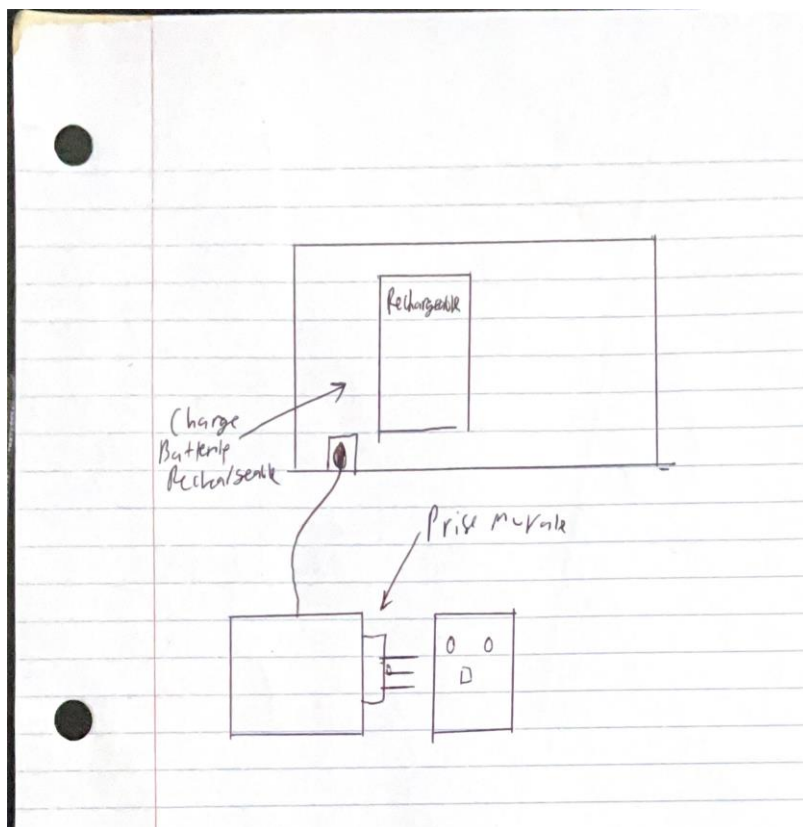 Rechargeable
Charge
Batterie
Rechargeable
Prise murale